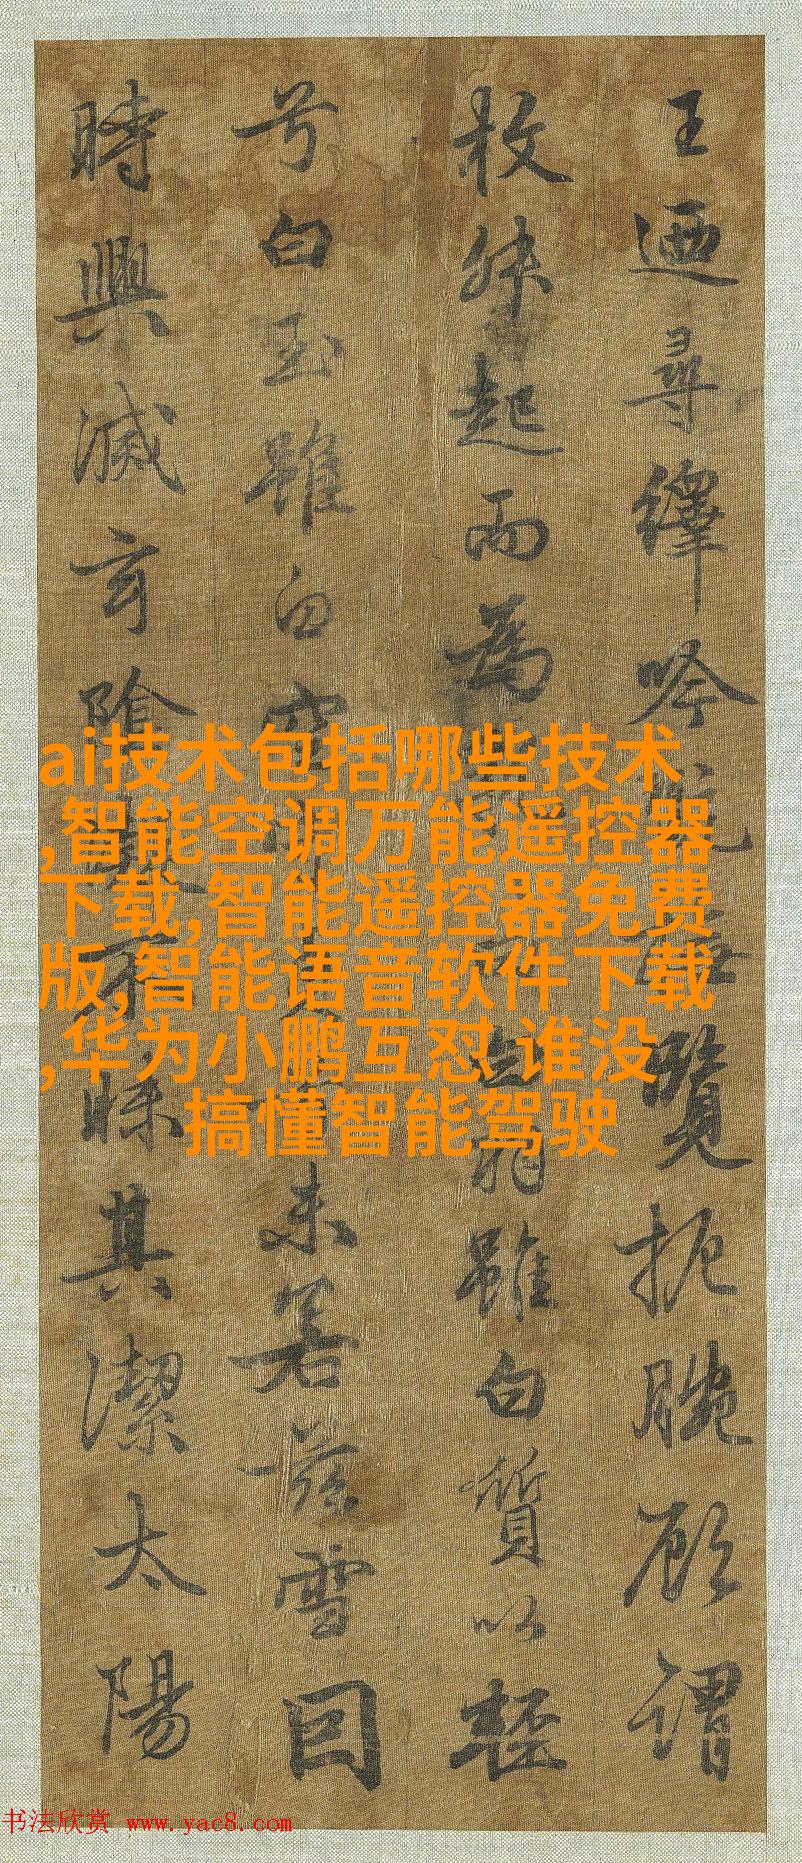 王迺尋繹吟翫覽扼腕顧謂
枚叔起而為白羽雖白質以輕
兮白玉雖白空未若茲雪囙
時興滅玄陰不昧其潔太陽
ai技术包括哪些技术
,智能空调万能遥控器
下载,智能遥控器免费
版,智能语音软件下载
,华为小鹏互怼 谁没
搞懂智能驾驶
书法欣赏 www.yac8.com